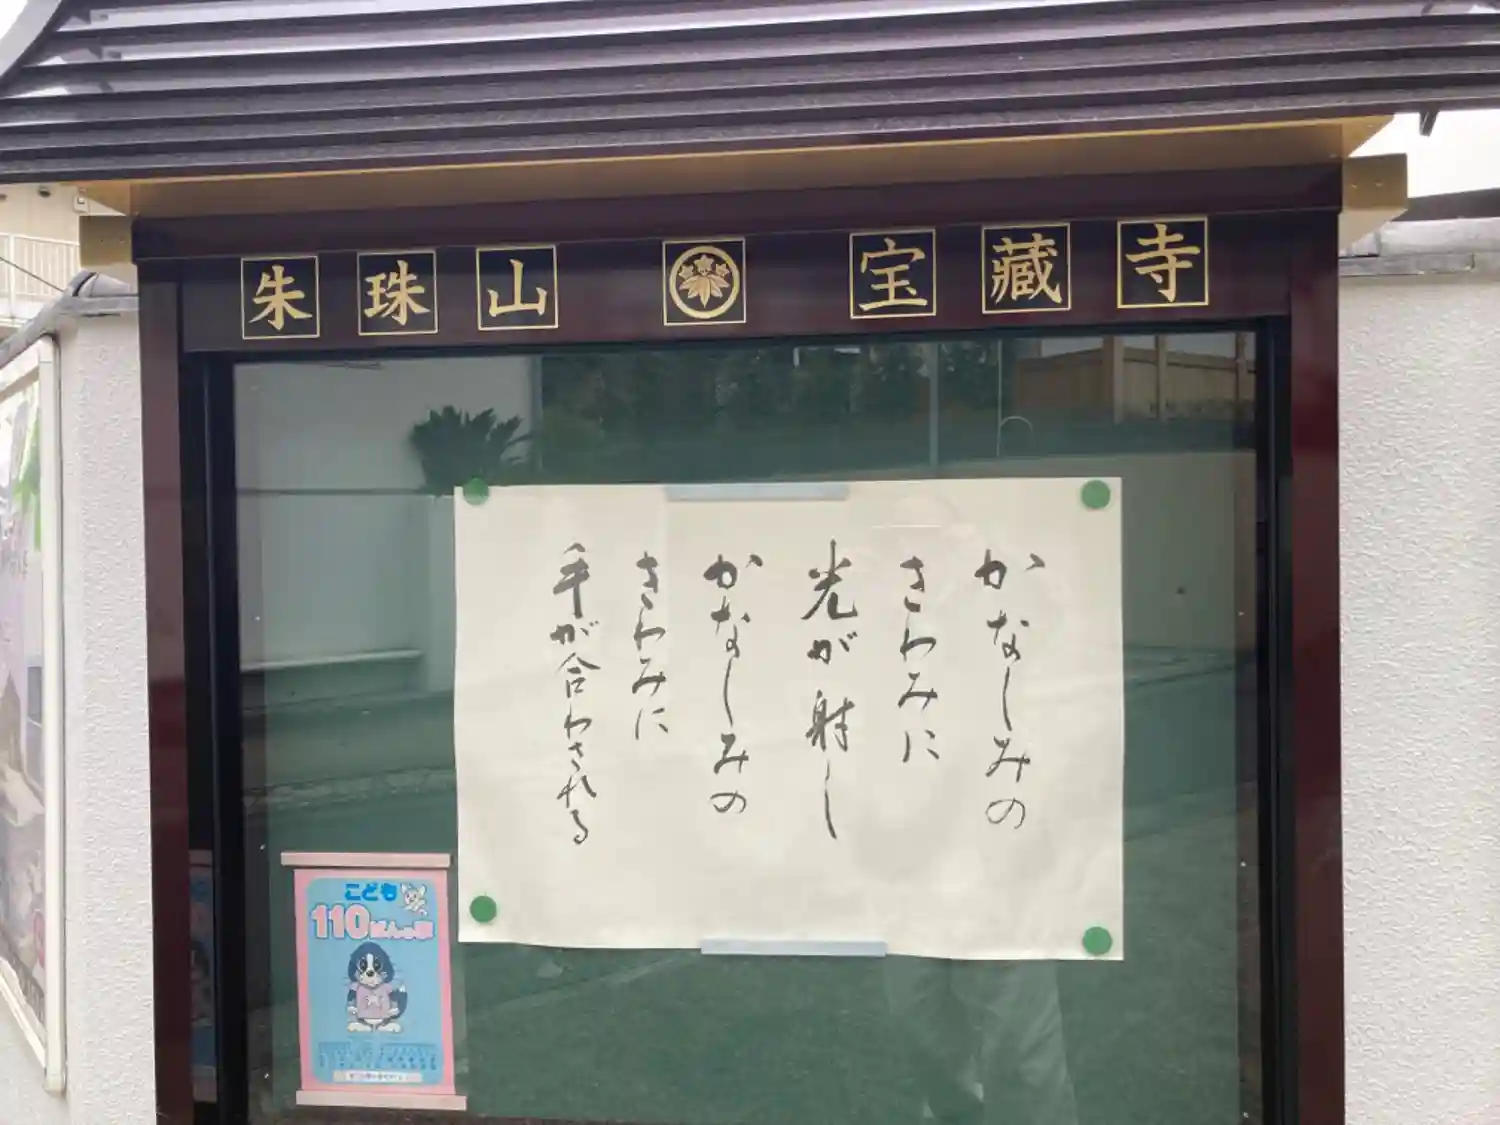 朱珠山 宝藏寺
かなしみの
きわみに
光が射し
かなしみの
きわみに
手が合わされる
こども
110ばんの家